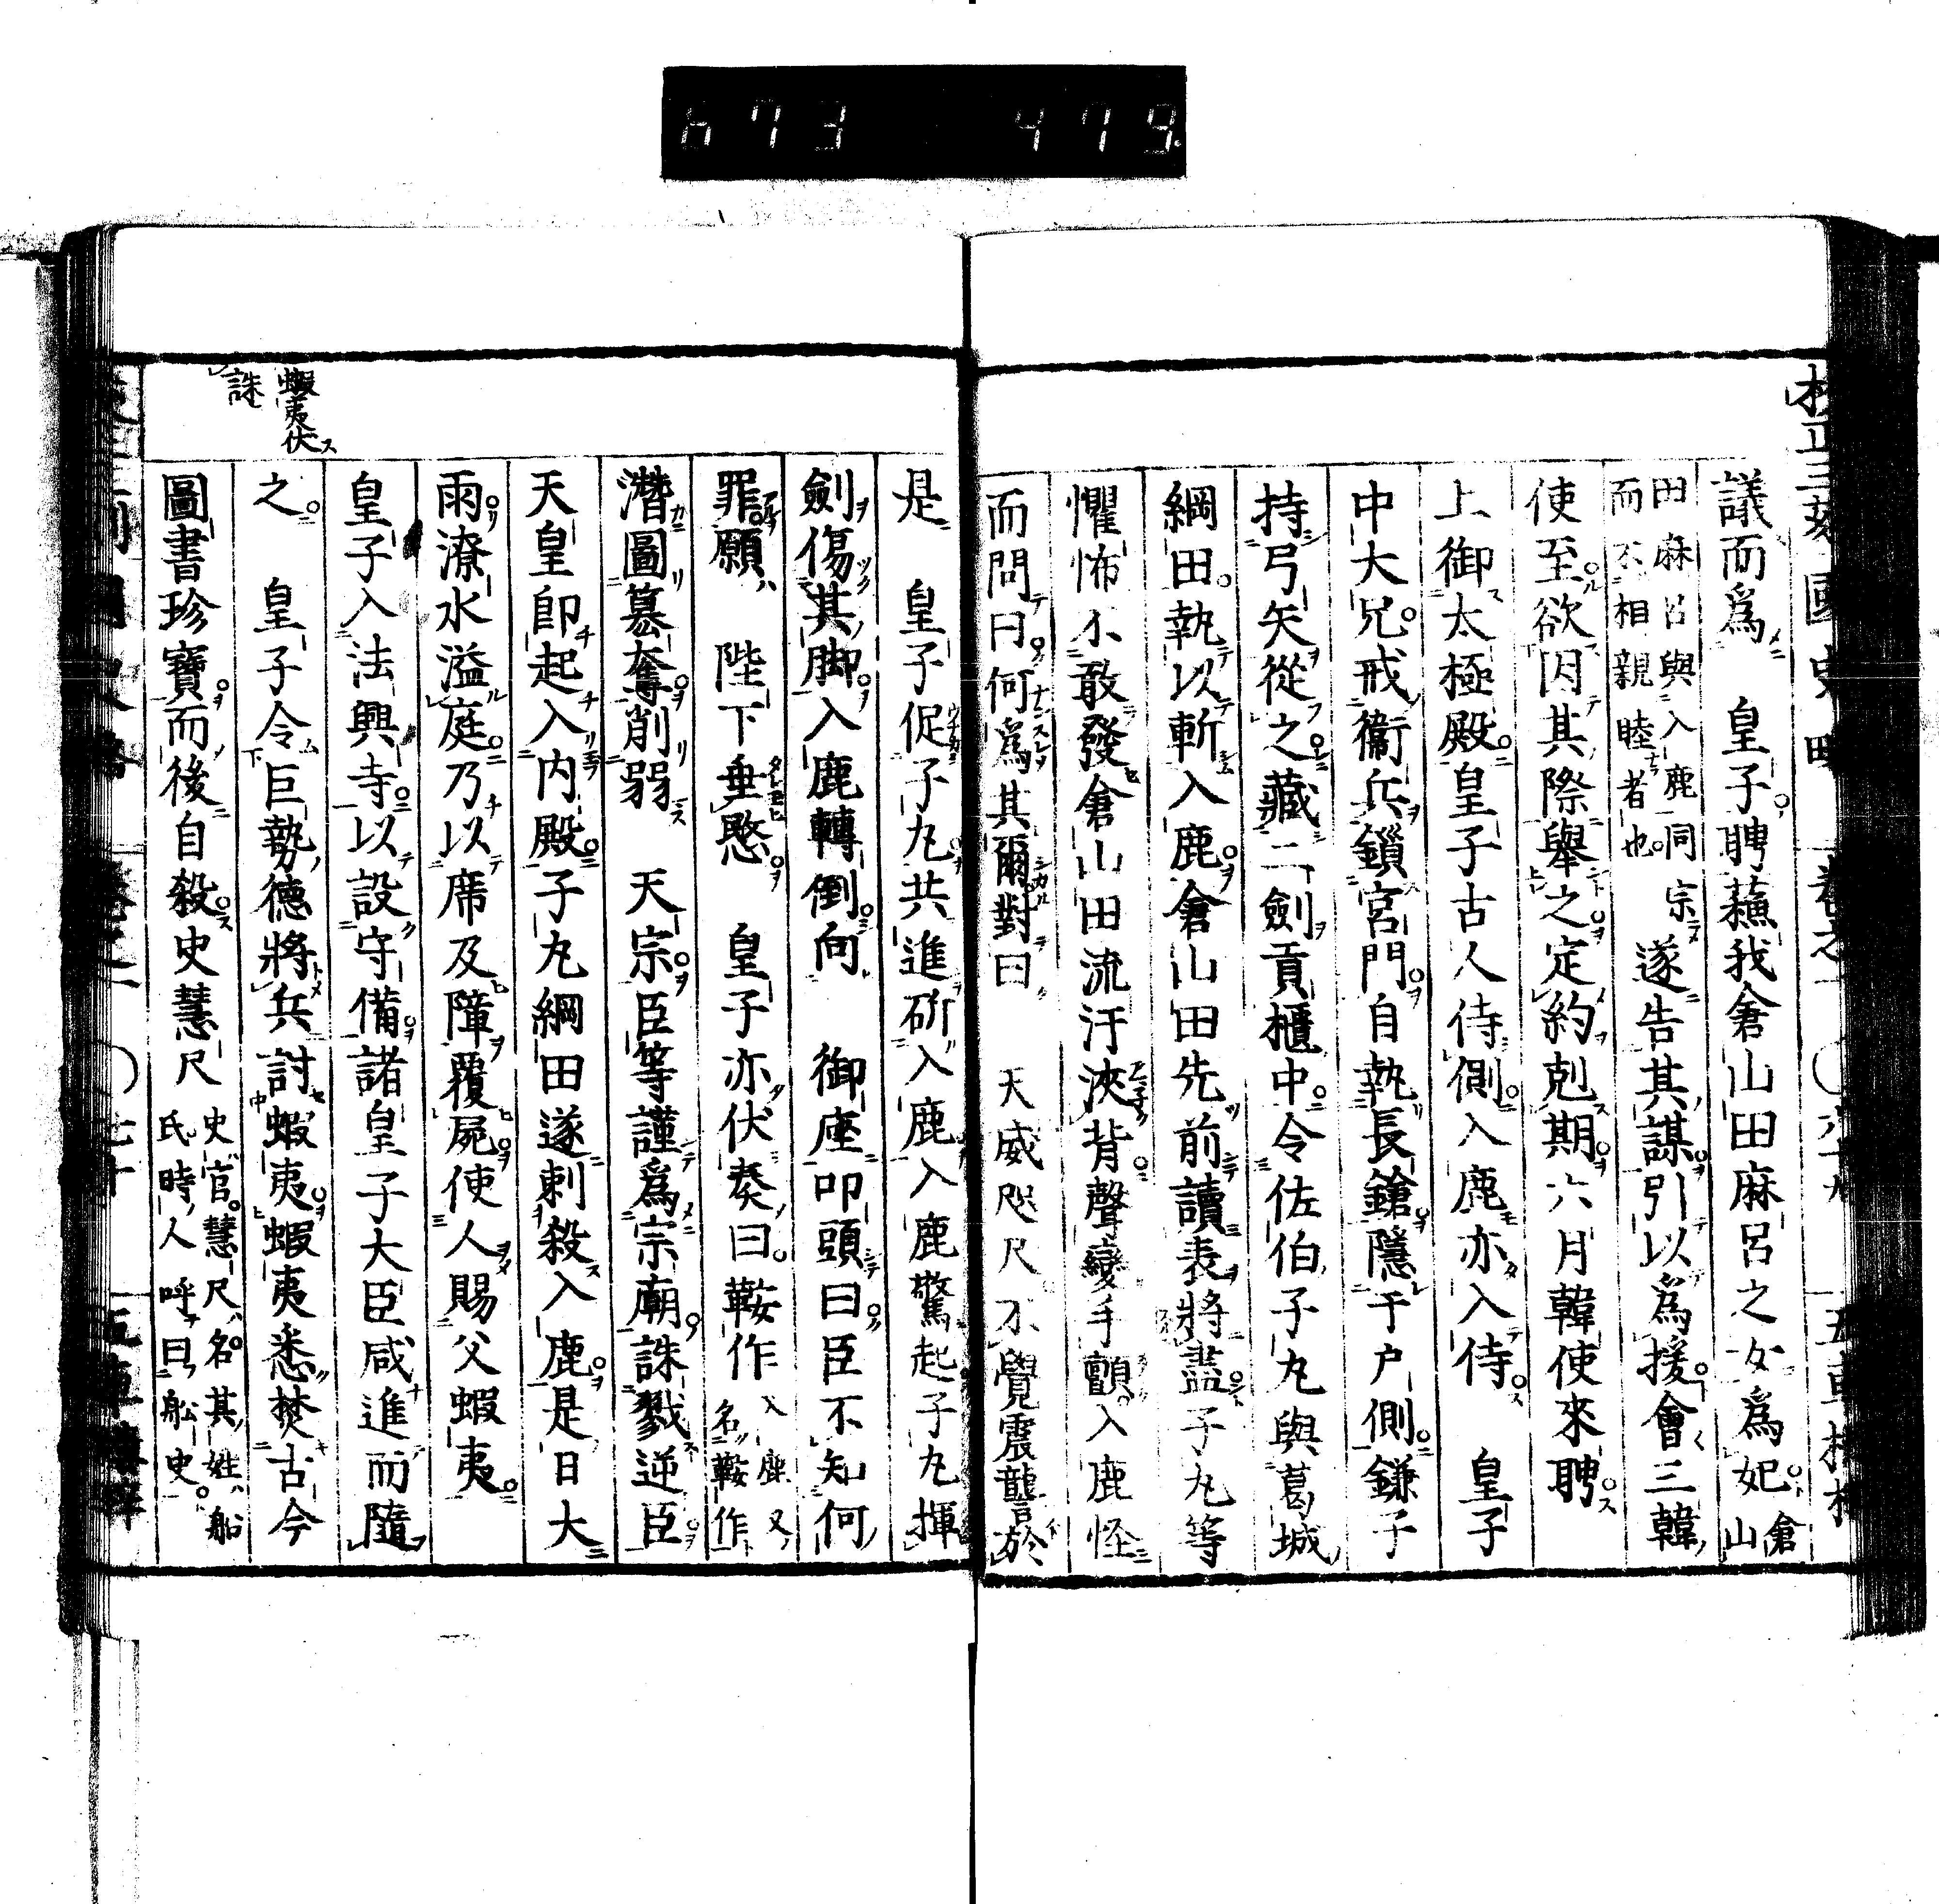 673 479
議而爲 皇子聘蘓我倉山田麻呂之女爲妃倉山
田麻呂與入鹿同宗
而不相親睦者也 遂告其謀引以爲援會三韓
使至欲因其際舉之定約剋期六月韓使來聘
上御太極殿皇子古人侍側入鹿亦入侍 皇子
中大兄戒衞兵鎖宮門自執長鎗隱于戸側鎌子
持弓矢從之藏二劍貢櫃中令佐伯子丸與葛城
綱田執以斬入鹿倉山田先前讀表將盡子丸等
懼怖不敢發倉山田流汗浹背聲變手顫入鹿怪
而問曰何爲其爾對曰 天威咫尺不覺震讋於
是 皇子促子丸共進斫入鹿入鹿驚起子丸揮
劍傷其脚入鹿轉倒向 御座叩頭曰臣不知何
罪願 陛下垂愍 皇子亦伏奏曰鞍作入鹿又
名鞍作
潛圖簒奪削弱 天宗臣等謹爲宗廟誅戮逆臣
天皇卽起入内殿子丸綱田遂刺殺入鹿是日大
雨潦水溢庭乃以席及障覆屍使人賜父蝦夷
皇子入法興寺以設守備諸皇子大臣咸進而隨
之 皇子令巨勢德將兵討蝦夷蝦夷悉焚古今
圖書珍寶而後自殺史慧尺史官慧尺名其姓船
氏時人呼曰船史
蝦夷伏
誅